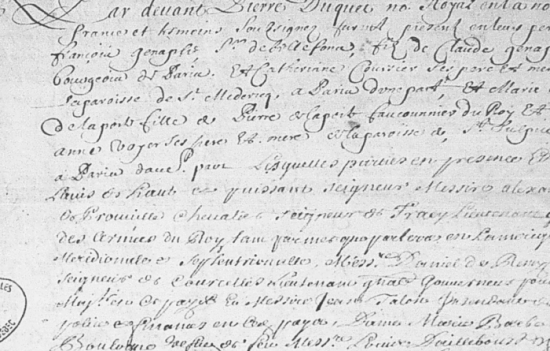 Par devant Pierre Duquet no. Royal en la no
france et temoins Soubsignez furent presens en leurs per
françois genaple Sr. de bellefons fils de Claude genap
bourgeois de Paris, Et Catherine Coursier ses pere et mer
de la paroisse de St. Medericq, a Paris d'une part, Et Marie
de laporte fille de Pierre de laporte fauconnier du Roy Et
anne voyer ses pere Et mere de la paroisse de St. Sulpic
a Paris d'autre part Lesquelles parties en presence Et
haut et puissant seigneur Messire alexan
de Prouville Chevalier seigneur de Tracy Lieutenant
des Armées du Roy tant par mer que par terre, en Lamerique
Meridionale et Septentrionalle, Messre. Daniel de Remy
seigneur de Courcelles Lieutenant gnal Gouverneur pour
Majté. en ce pays Et Messire Jean Talon Intendant de
police et finances en ce pays, Dame Marie Barbe
Boulogne veufve de feu Messre. Louis Dailleboust